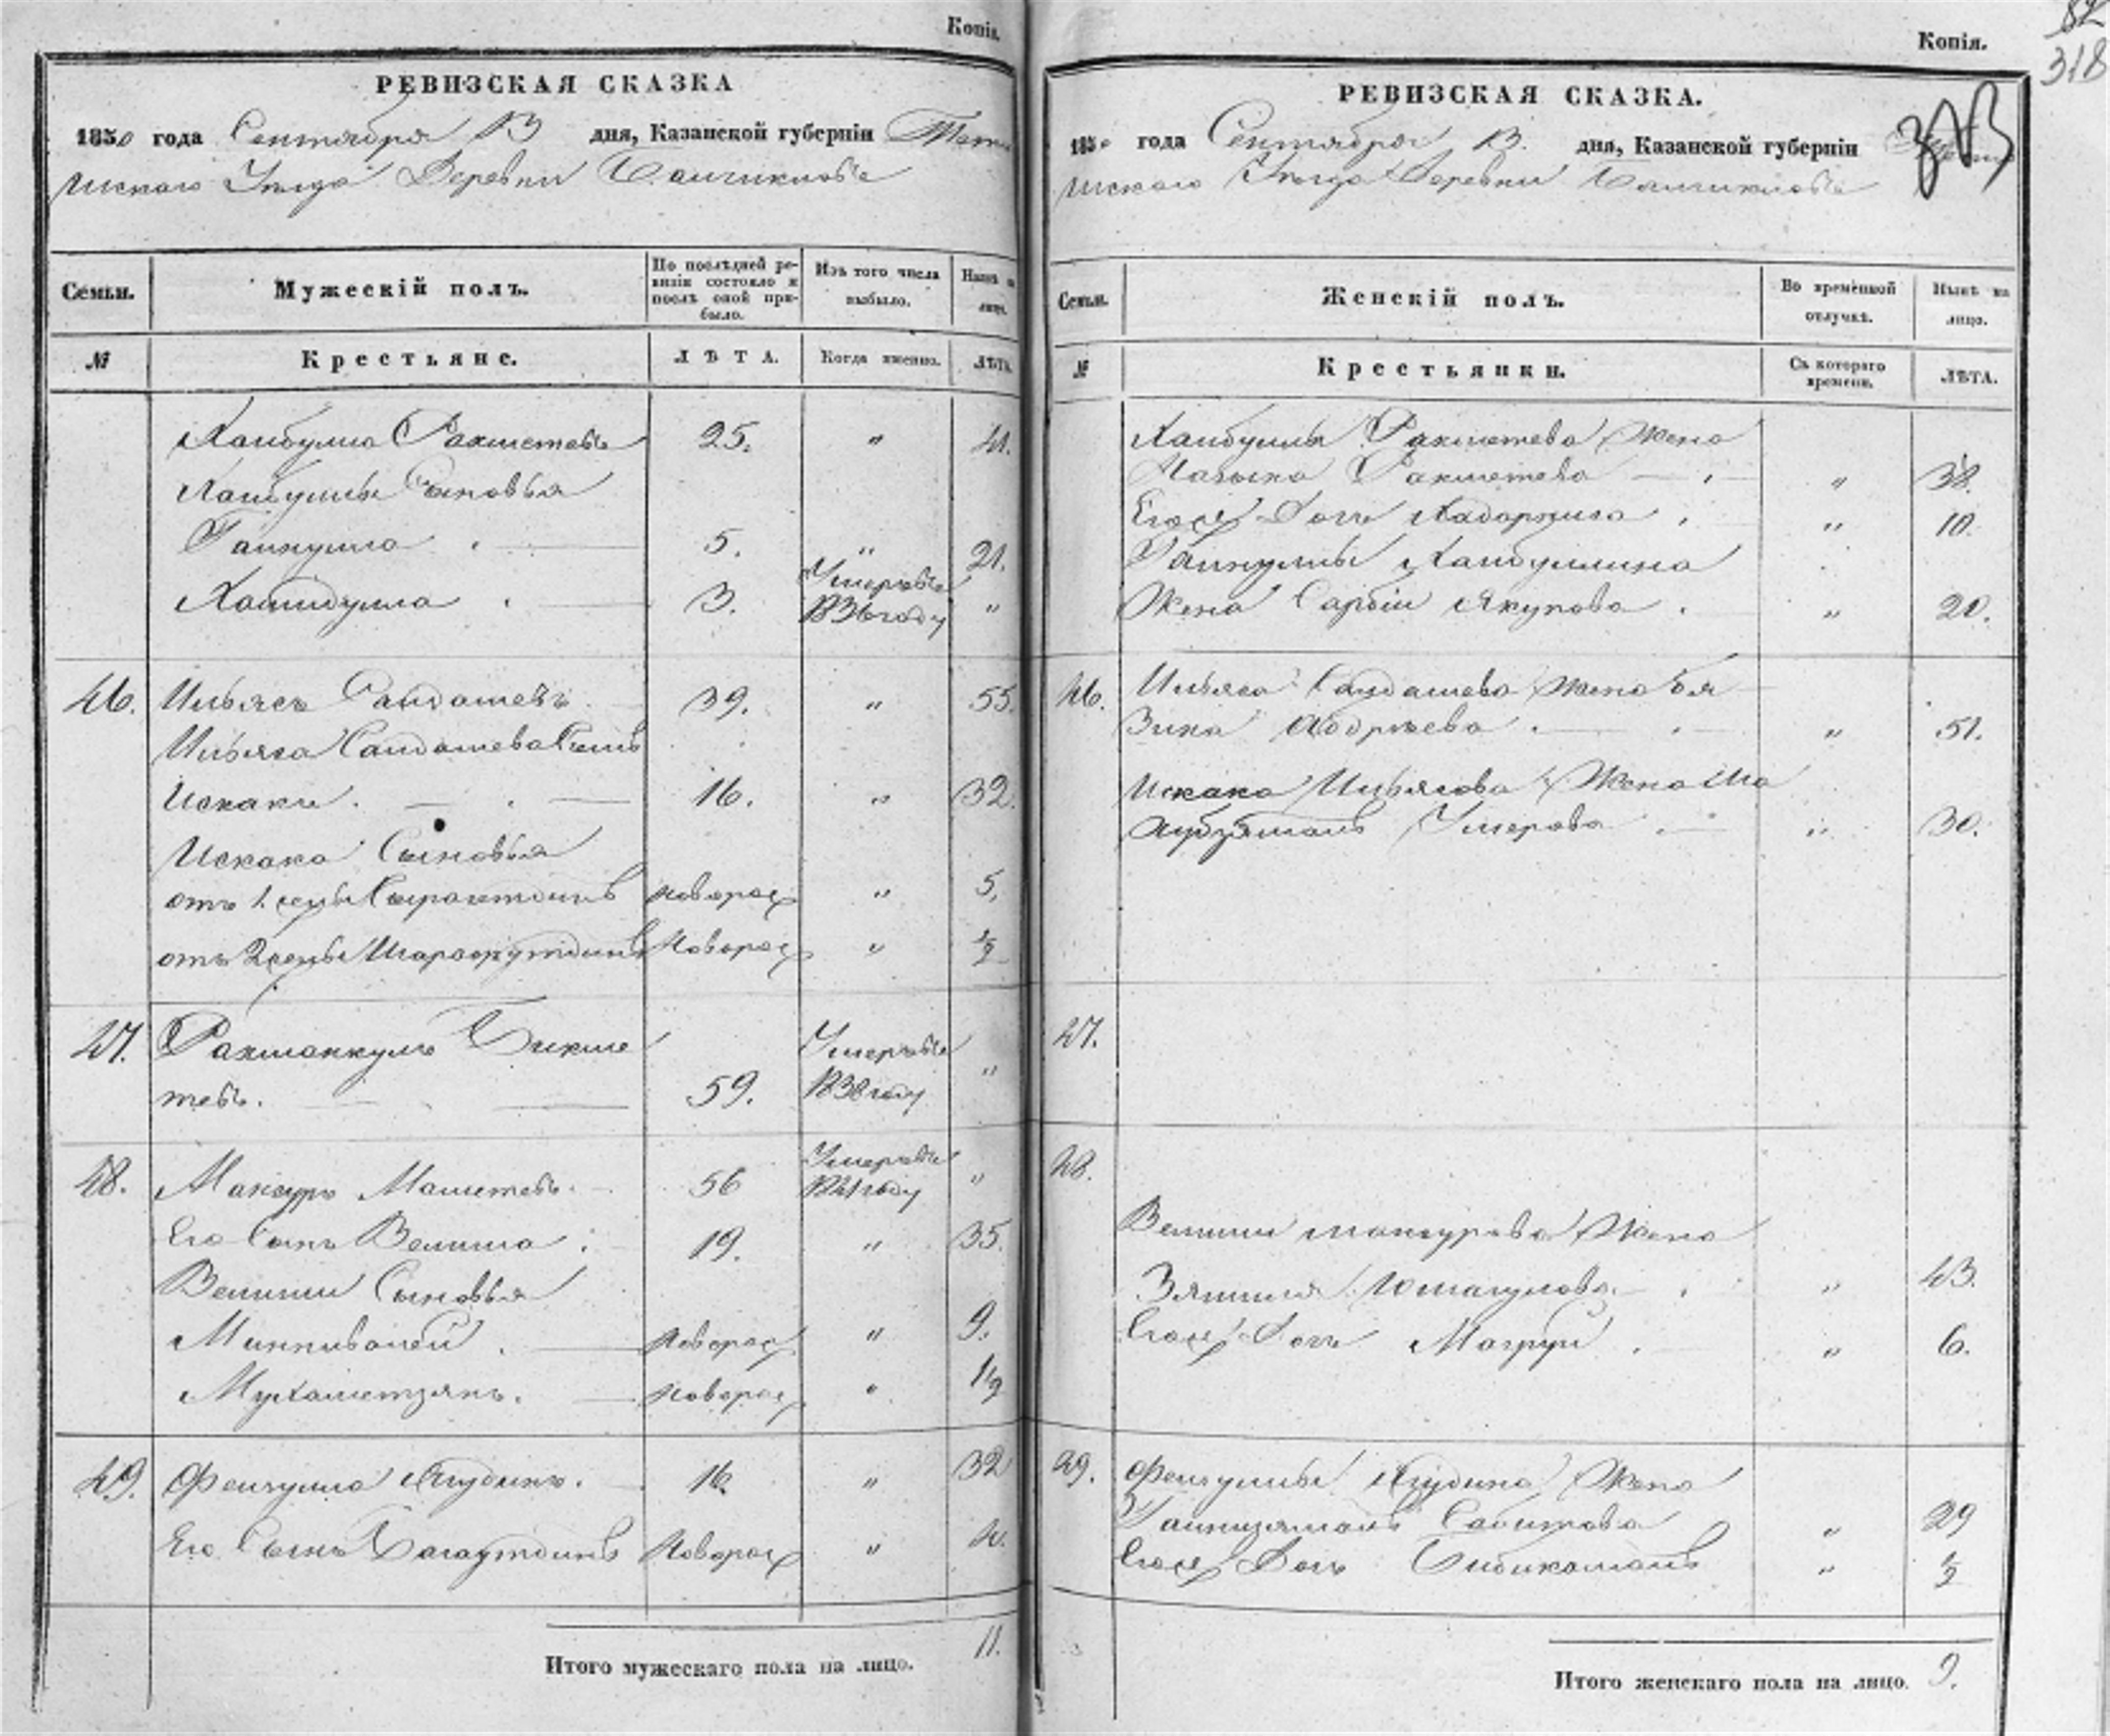 Копія.
РЕВИЗСКАЯ СКАЗКА
1850 года Сентября 13 дня, Казанской губерніи Тетю
шскаго Уезда Деревни
Семьи.
Мужескій полъ.
По послѣдней ре-
визіи состояло и
послѣ оной при-
было.
Изъ того числа
выбыло.
Нынѣ на
лицо.
№
Крестьяне.
ЛѢТА.
Когда именно.
ЛѢТА.
Хамбулла Рахметевъ 25. " 41.
Хамбуллы Сыновья
Гайнулла 5. " 21.
Умеръ въ
Хамидулла 3. 1836 году "
46. Ильясъ Сандашевъ 39. " 55.
Ильяса Сандашева Сынъ
Искакъ. 16. " 32.
Искака Сыновья
отъ 1. жены новорож " 5.
отъ 2 жены Шарафутдинъ новорож " ½
47. Рахманкулъ Бикме Умеръ въ "
тевъ. 59. 1838 году
48. Мансуръ Маметевъ. 56 Умеръ въ 1841 году "
Его Сынъ Велилла 19. " 35.
Велиллы Сыновья
Миннивалей новорож " 9.
Мухаметзянъ. новорож " 1½
49. Фейзулла Ягудинъ. 16. " 32
Его Сынъ Багаутдинъ новорож " 4.
Итого мужескаго пола на лицо. 11.
82
318
Копія.
РЕВИЗСКАЯ СКАЗКА.
1850 года Сентября 13. дня, Казанской губерніи
шскаго Уезда Деревни
Семьи.
Женскій полъ.
Во временной
отлучкѣ.
Нынѣ на
лицо.
№
Крестьянки.
Съ котораго
времени.
ЛѢТА.
Хамбуллы Рахметева Жена
Рахметева " 38.
Его же Дочь " 10.
Гайнуллы Хамбуллина
Жена Сарби Якупова " 20.
46. Ильяса Сандашева Жена Бя
Зика " 51.
Искака Ильясова Жена Ма
Умерова " 30.
47.
48.
Велиллы Мансурова Жена
Юмагулова " 43.
Его же Дочь " 6.
49. Фейзуллы Ягудина Жена
Сабитова " 29
Его же Дочь Бибикамалъ " ½
Итого женскаго пола на лицо. 9.